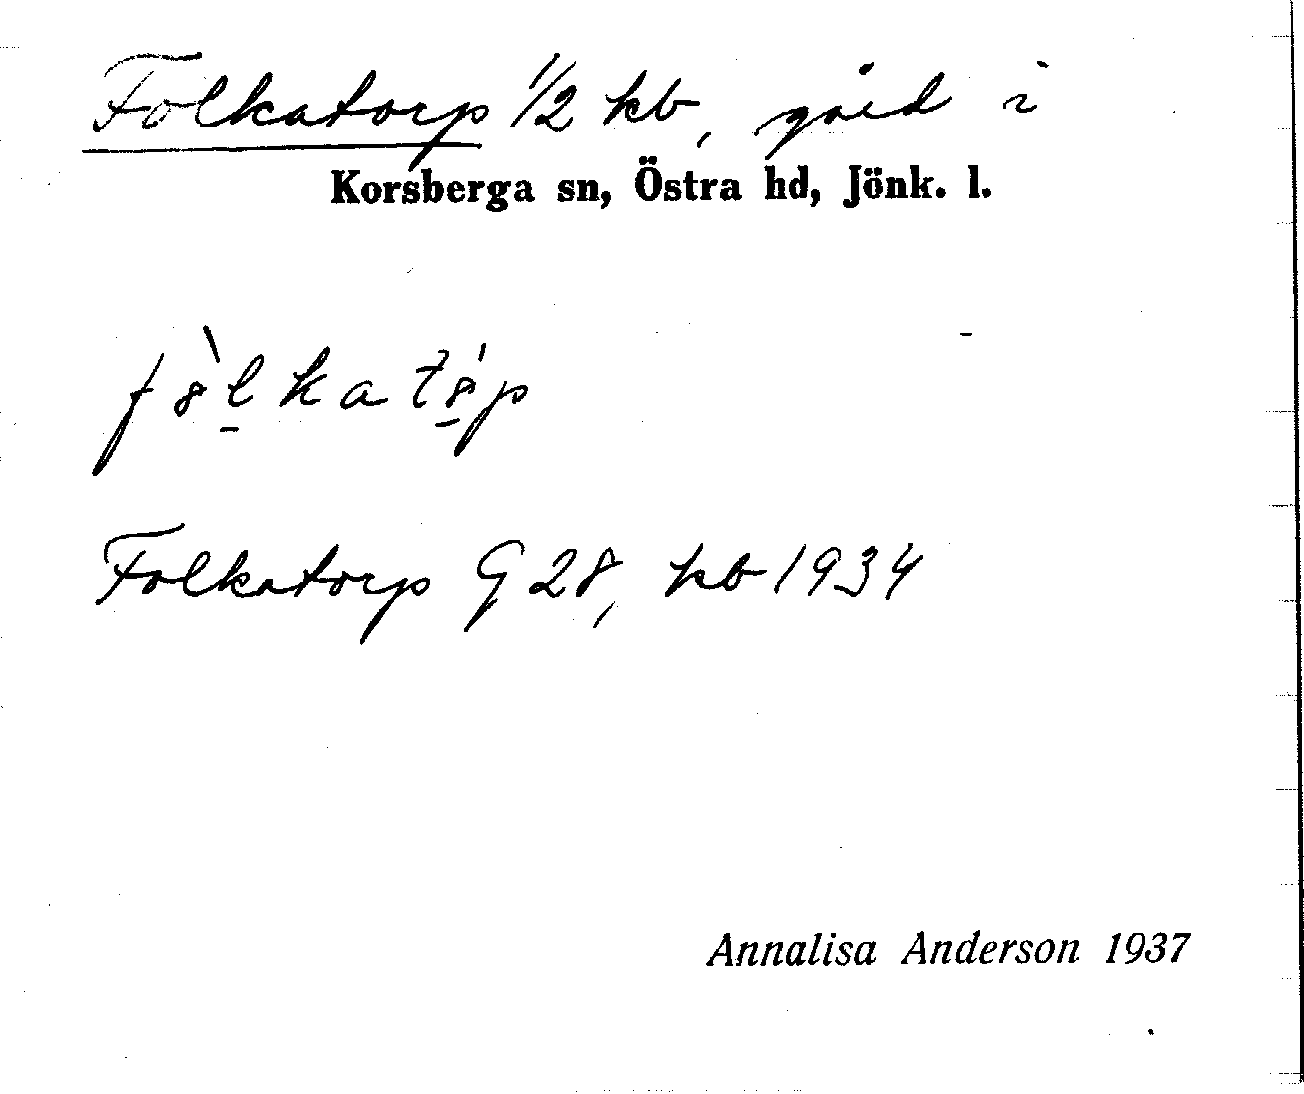 Folkatorp 1/2 kb, gård i
Korsberga sn, Östra hd, Jönk. l.
Folkatorp G 28, kb 1934
Annalisa Anderson 1937